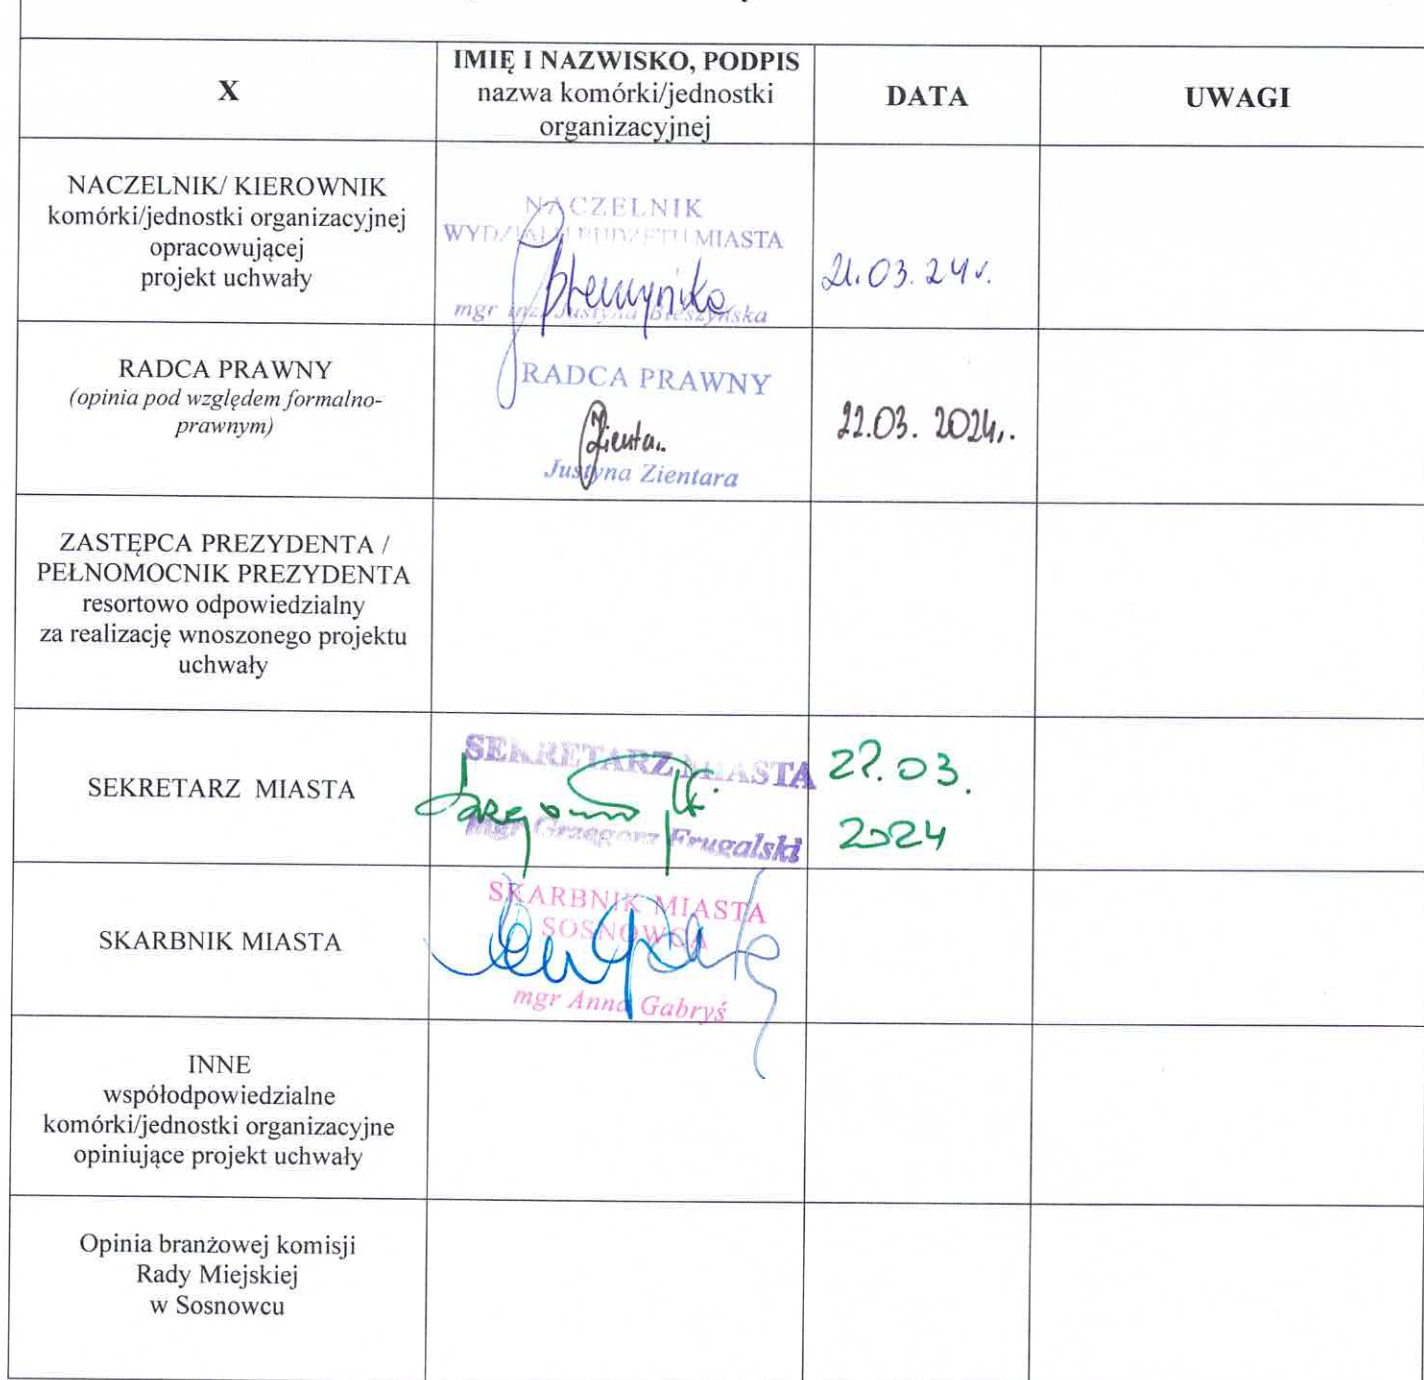 X
IMIĘ I NAZWISKO, PODPIS
nazwa komórki/jednostki
organizacyjnej
DATA
UWAGI
NACZELNIK/ KIEROWNIK
komórki/jednostki organizacyjnej
opracowującej
projekt uchwały
NACZELNIK
WYDZIAŁU BUDŻETU MIASTA
mgr inż. Justyna
21.03.24r.
RADCA PRAWNY
(opinia pod względem formalno-
prawnym)
RADCA PRAWNY
Justyna Zientara
22.03.2024r.
ZASTĘPCA PREZYDENTA /
PEŁNOMOCNIK PREZYDENTA
resortowo odpowiedzialny
za realizację wnoszonego projektu
uchwały
SEKRETARZ MIASTA
SEKRETARZ MIASTA
mgr Grzegorz Frugalski
03.
2024
SKARBNIK MIASTA
SKARBNIK MIASTA
SOSNOWCA
mgr Anna Gabryś
INNE
współodpowiedzialne
komórki/jednostki organizacyjne
opiniujące projekt uchwały
Opinia branżowej komisji
Rady Miejskiej
w Sosnowcu